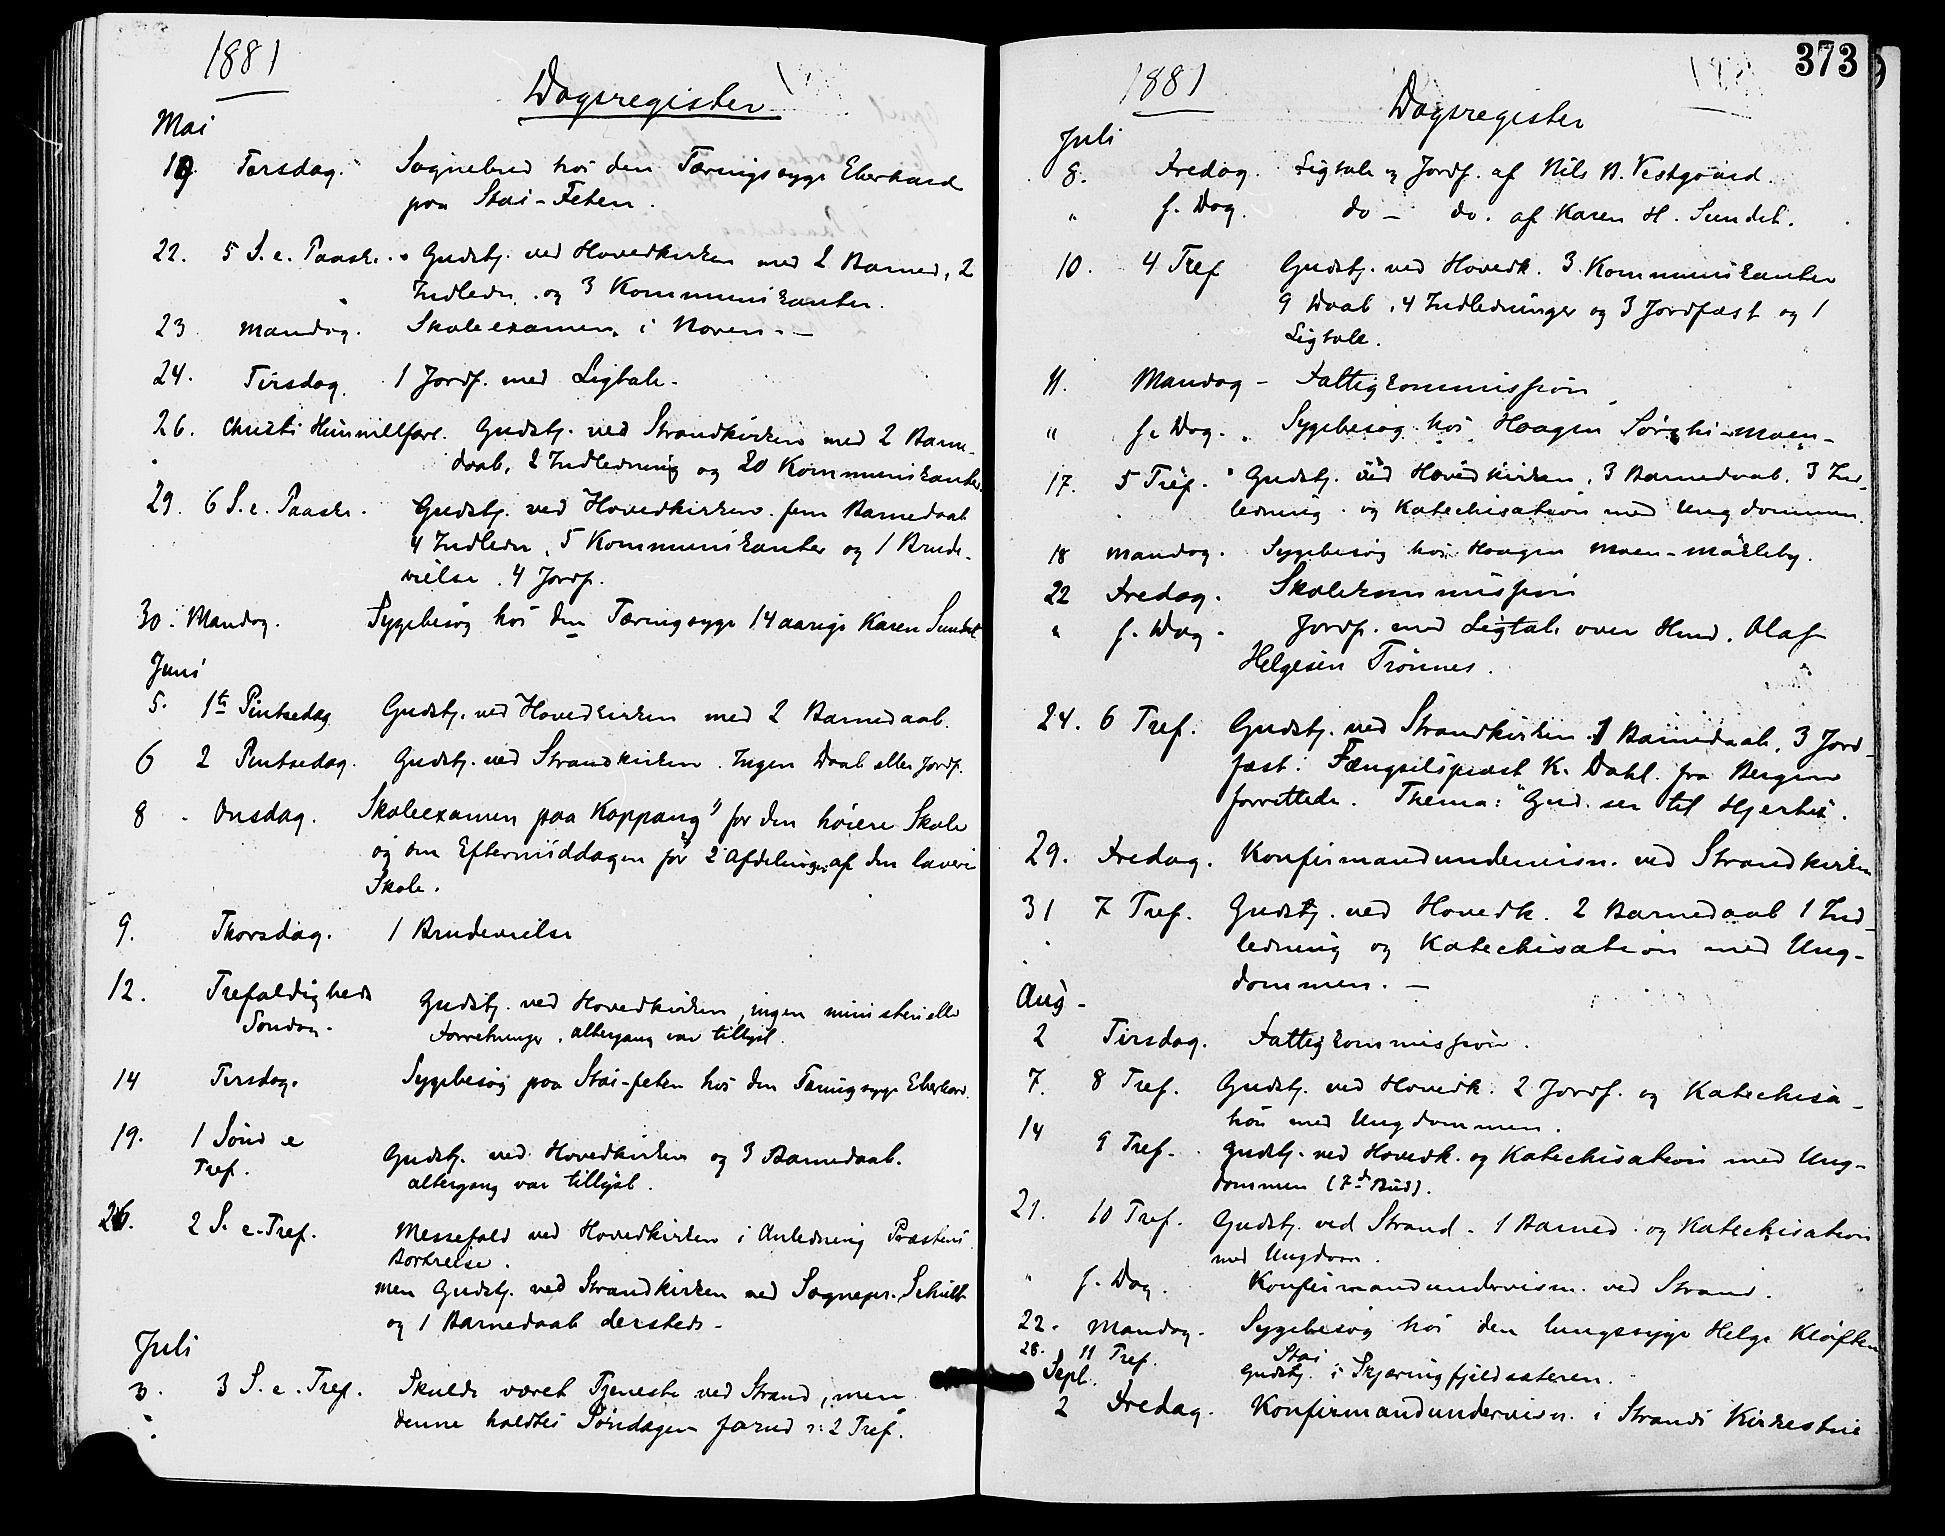 1881
Dagsregister
Mai
19. Torsdag. Sognebud hos den Tæringssyge Eberhard
paa Stai-Feten.
22. 5 S. e. Paaske. Gudstj. ved Hovedkirken med 2 Barned, 2
Indledn. og 3 Kommunikanter.
23. Mandag. Skoleexamen i Noren. —
24. Tirsdag. 1 Jordf. med Ligtale.
26. Christi Himmelfart. Gudstj. ved Strandkirken med 2 Barne-
daab, 2 Indledning og 20 Kommunikanter.
29. 6 S. e. Paaske. Gudstj. ved Hovedkirken. fem Barnedaab
4 Indledn, 5 Kommunikanter og 1 Brude-
vielse. 4 Jordf.
30. Mandag. Sygebesøg hos den Tæringsyge 14 aarige Karen Sundet
Juni
5. 1ste Pintsedag Gudstj. ved Hovedkirken med 2 Barnedaab.
6 2 Pintsedag. Gudstj. ved Strandkirken. Ingen Daab eller Jordf.
8 Onsdag. Skoleexamen paa Koppang" for den høiere Skole
og om Eftermiddagen for 2 Afdelinger af den lavere
Skole.
9. Thorsdag. 1 Brudevielse
12. Trefaldigheds Gudstj. ved Hovedkirken, ingen ministerielle
Søndag. Forretninger. altergang var tillyst.
14 Tirsdag. Sygebesøg paa Stai-feten hos den Tæringsyge Eberhard.
19. 1 Sønd e Gudstj. ved Hovedkirken og 3 Barnedaab.
Tref. altergang var tillyst.
26. 2 S. e. Tref. Messefald ved Hovedkirken i Anledning Præstens
Bortreise.
men Gudstj. ved Strandkirken ved Sognepr. Schult
og 1 Barnedaab dersteds.
Juli
3. 3 S. e. Tref. Skulde været Tjeneste ved Strand, men
denne holdtes Søndagen forud ɔ: 2 Tref.
373
1881
Dagsregister
Juli
8. Fredag. Ligtale og Jordf. af Nils N. Vestgaard.
" s. Dag. do — do. af Karen H. Sundet.
10. 4 Tref Gudstj. ved Hovedk. 3 Kommunikanter
9 Daab, 4 Indledninger og 3 Jordfæst og 1
Ligtale.
11. Mandag - Fattigkommission
" s. Dag. Sygebesøg hos Haagen Moen-
17. 5 Tref. Gudstj. ved Hovedkirken, 3 Barnedaab. 3 Ind-
ledning. og Katechisation med Ungdommen.
18 Mandag. Sygebesøg hos Haagen Moen-Møkleby.
22 Fredag. Skolekommission
" s. Dag. Jordf. med Ligtale over Hmd. Olaf
Helgesen Trønnes.
24. 6 Tref. Gudstj. ved Strandkirken. 1 Barnedaab, 3 Jord-
fæst. Fængselspræst K. Dahl. fra Bergen
forrettede. Thema: "Gud ser til Hjertet".
29. Fredag. Konfirmandundervisn. ved Strandkirken
31 7 Tref. Gudstj. ved Hovedk. 2 Barnedaab 1 Ind-
ledning og Katechisation med Ung-
dommen. —
Aug.
2 Tirsdag. Fattigkommission.
7. 8 Tref. Gudstj. ved Hovedk. 2 Jordf. og Katechisa-
tion med Ungdommen.
14 9 Tref. Gudstj. ved Hovedk. og Katechisation med Ung-
dommen (7de Bud).
21. 10 Tref. Gudstj. ved Strand. 1 Barned. og Katechisation
med Ungdom.
" s. Dag. Konfirmandundervisn. ved Strand.
22. Mandag. Sygebesøg hos den lungesyge Helge Kløften
28. 11 Tref. Gudstj. i Stai Skjæringfjeldsæteren.
Sept.
2 Fredag. Konfirmandundervisn. i Strands Kirkestue